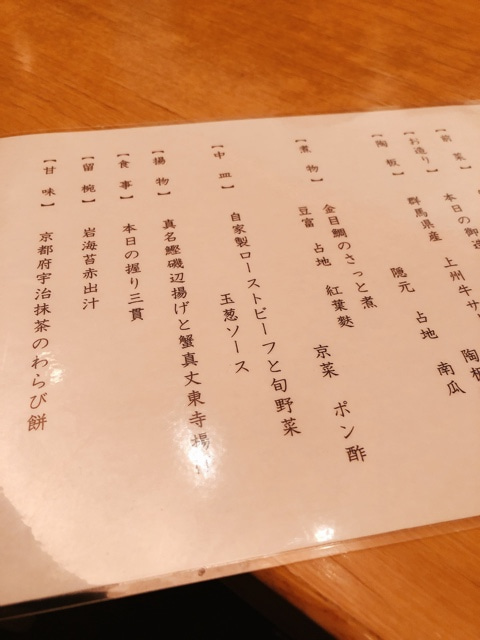 【前菜】 本日の御造
【お造り】
【陶板】 群馬県産 上州牛サ
隠元 占地 南瓜
【煮物】 金目鯛のさっと煮
豆富 占地 紅葉麩 京菜 ポン酢
【中皿】 自家製ローストビーフと旬野菜
玉葱ソース
【揚物】 真名鰹磯辺揚げと蟹真丈東寺揚
【食事】 本日の握り三貫
【留椀】 岩海苔赤出汁
【甘味】 京都府宇治抹茶のわらび餅